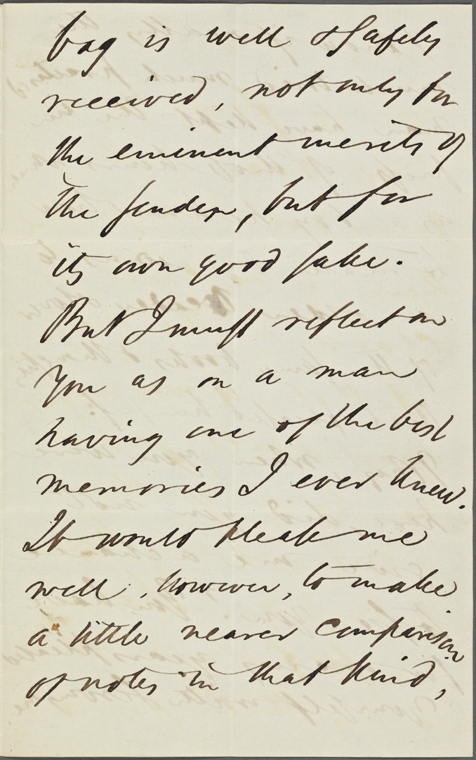 bag is well & safely
received, not only for
the eminent merits of
the sender, but for
its own good sake.
But I must reflect on
you as on a man
having one of the best
memories I ever knew.
It would please me
well, however, to make
a little nearer comparison
of notes in that kind,